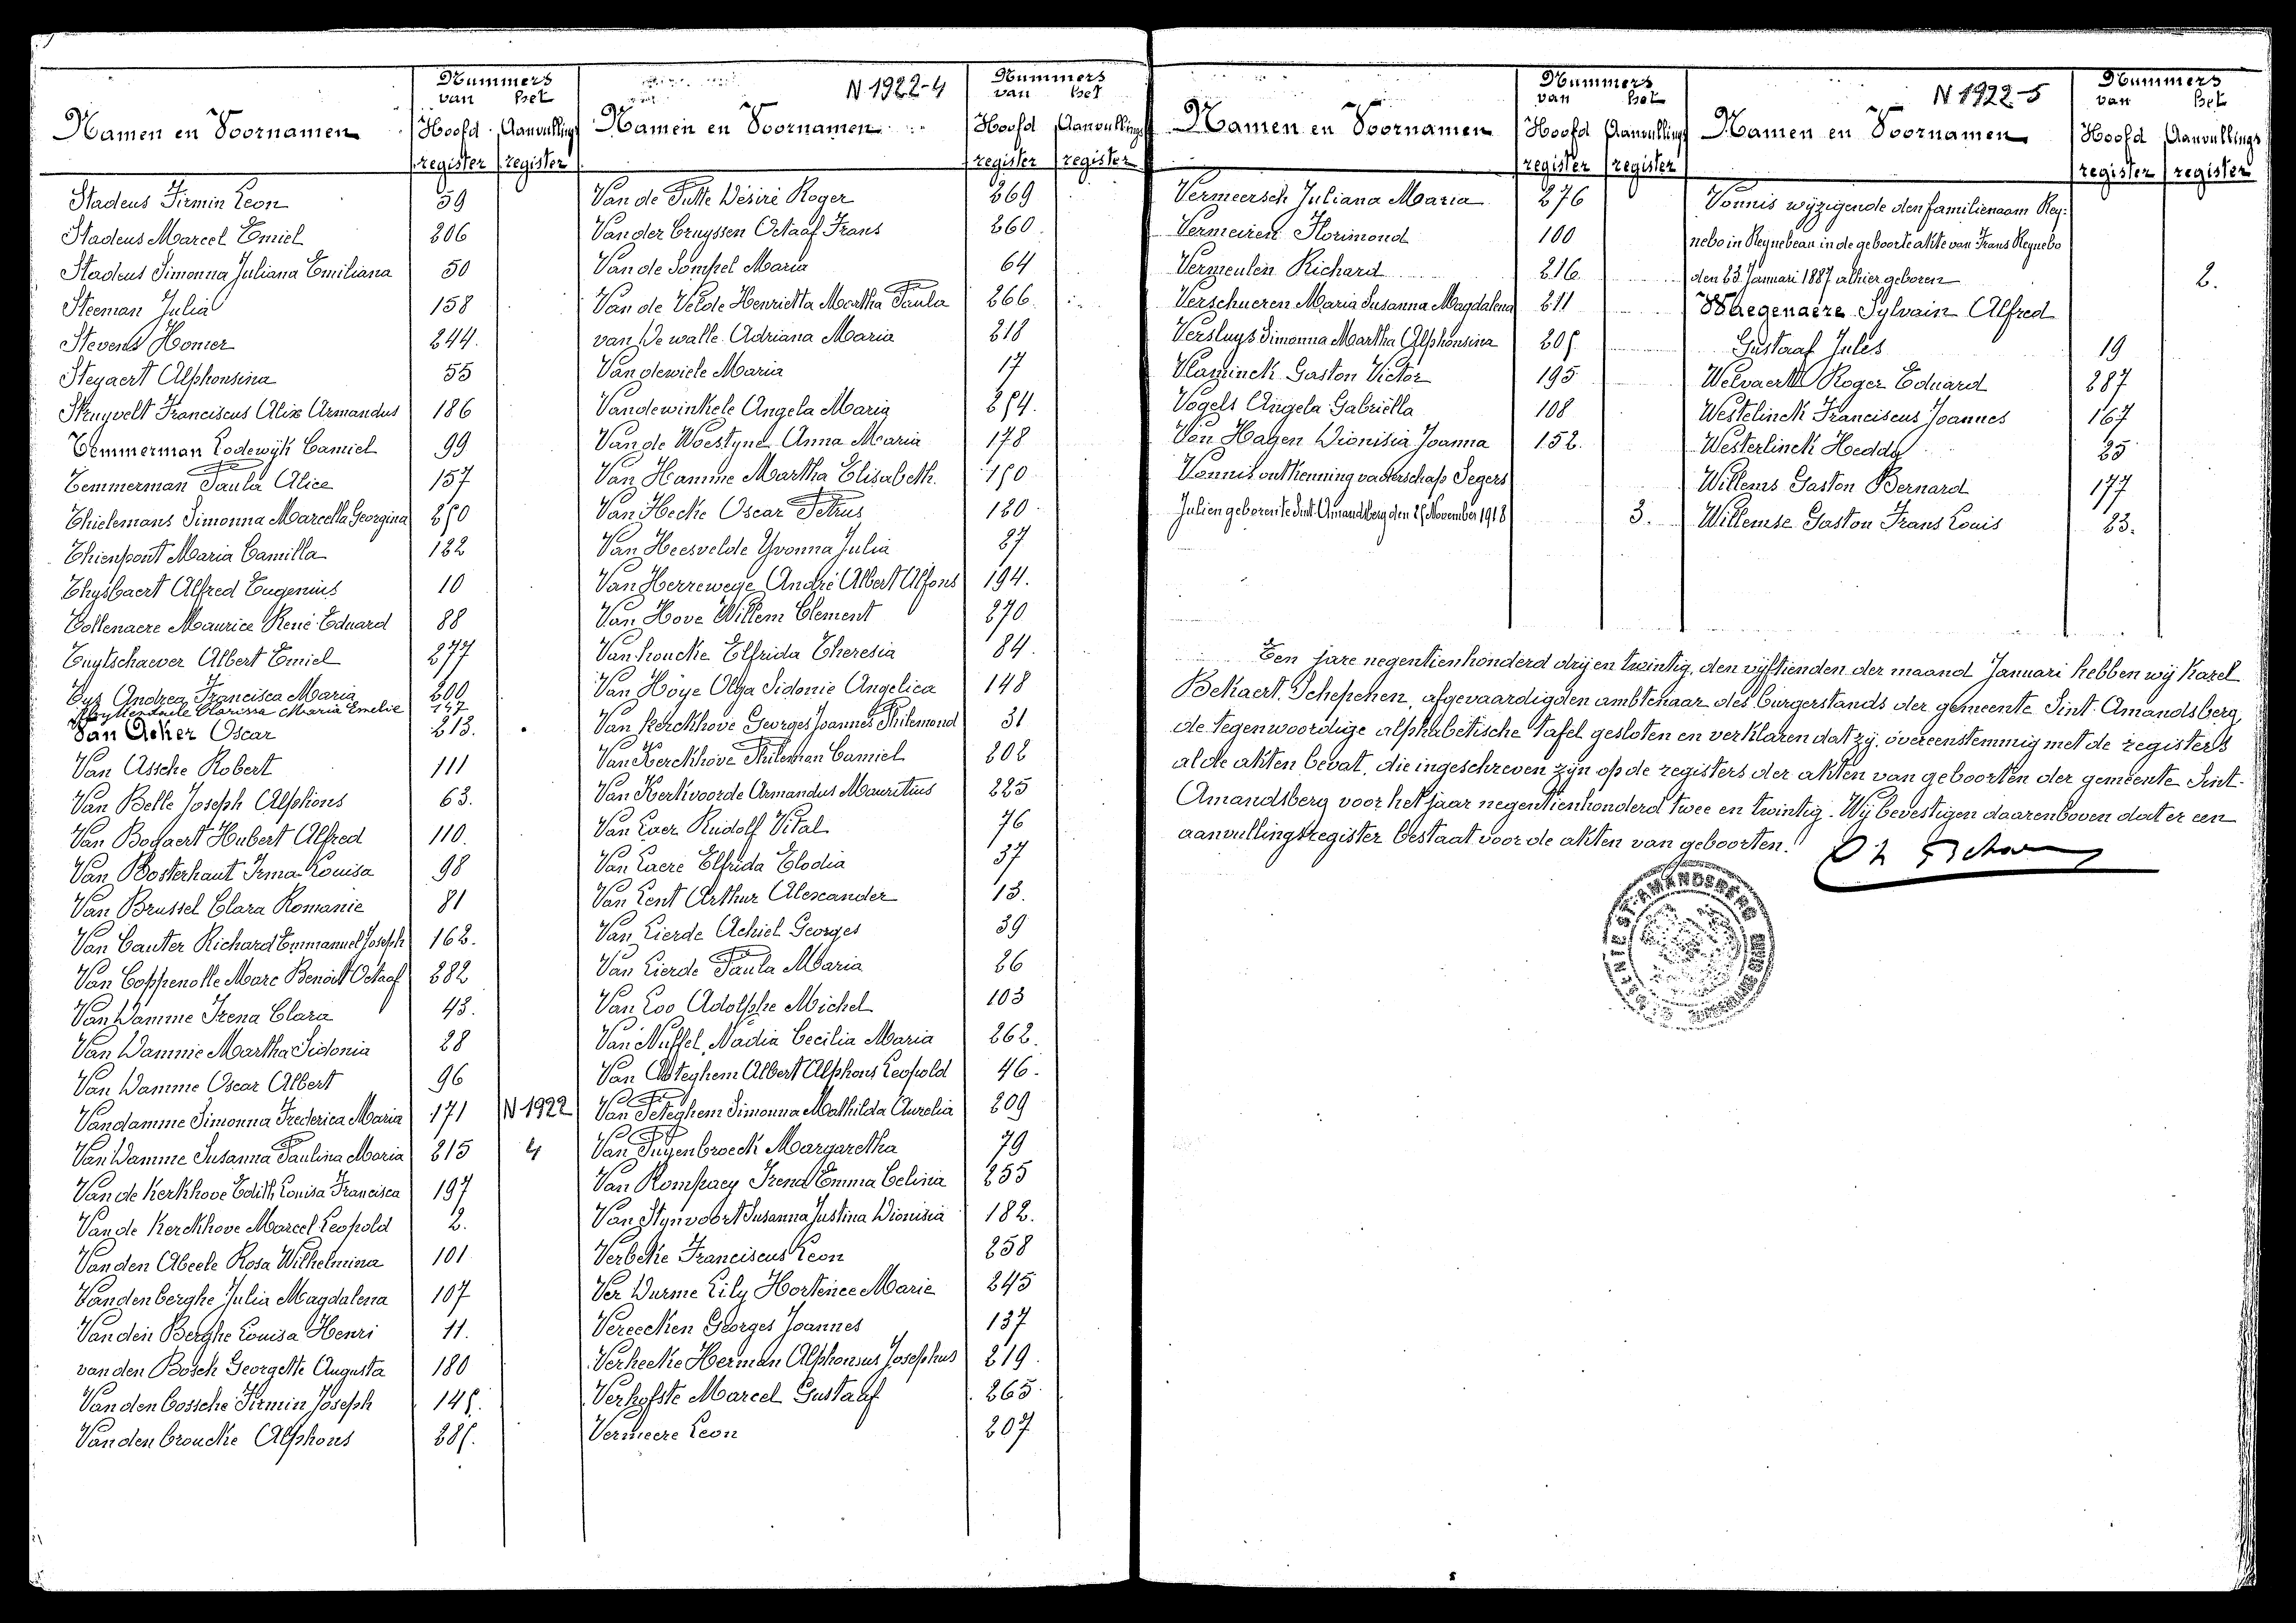 Nummers
van het
Namen en Voornamen
Hoofd Aanvullings
register register
Stadeus Firmin Leon 59
Stadeus Marcel Emiel 206
Stadeus Simonna Juliana Emiliana 50
Steeman Julia 158
Stevens Homer 244.
Steyaert Alphonsina 55
Struyvelt Franciscus Alix Armandus 186
Temmerman Lodewijk Camiel 99
Temmerman Paula Alice 157
Thielemans Simonna Marcella Georgina 250
Thienpont Maria Camilla 122
Thysbaert Alfred Eugenius 10
Tollenaere Maurice René Eduard 88
Tuytschaever Albert Emiel 277
Tys Andrea Francisca Maria 200
Clarissa Maria Emelie 147
Van Acker Oscar 213.
Van Assche Robert 111
Van Belle Joseph Alphons 63.
Van Bogaert Hubert Alfred 110.
Van Bosterhaut Irma Louisa 98
Van Brussel Clara Romanie 81
Van Cauter Richard Emmanuel Joseph 162.
Van Coppenolle Marc Benoit Octaaf 282
Van Damme Irena Clara 43.
Van Damme Martha Sidonia 28
Van Damme Oscar Albert 96
Vandamme Simonna Frederica Maria 171 N 1922
Van Damme Susanna Paulina Maria 215 4
Van de Kerkhove Edith Louisa Francisca 197
Van de Kerckhove Marcel Leopold 2.
Van den Abeele Rosa Wilhelmina 101
Vandenberghe Julia Magdalena 107
Van den Berghe Louisa Henri 11.
van den Bosch Georgette Augusta 180
Van den bossche Firmin Joseph 145.
Van den broucke Alphons 285.
N 1922-4
Nummers
van het
Namen en Voornamen
Hoofd Aanvullings
register register
Van de Putte Désiré Roger 269
Van der Cruyssen Octaaf Frans 260
Van de Sompel Maria 64
Van de Velde Henrietta Martha Paula 266
van De walle Adriana Maria 218
Van dewiele Maria 17
Vandewinkele Angela Maria 254.
Van de Woestyne Anna Maria 178
Van Hamme Martha Elisabeth. 150
Van Hecke Oscar Petrus 120
Van Heesvelde Yvonna Julia 27
Van Herrewege André Albert Alfons 194.
Van Hove Willem Clement 270
Van houcke Elfrida Theresia 84.
Van Hoye Olga Sidonie Angelica 148
Van Kerckhove Georges Joannes Philemond 31
Van Kerckhove Philemon Camiel 202
Van Kerkvoorde Armandus Mauritius 225
Van Laer Rudolf Vital 76
Van Laere Elfrida Elodia 37
Van Lent Arthur Alexander 13.
Van Lierde Achiel Georges 39
Van Lierde Paula Maria 26
Van Loo Adolphe Michel 103
Van Nuffel Nadia Cecilia Maria 262.
Van Oteghem Albert Alphons Leopold 46.
Van Peteghem Simonna Mathilda Aurelia 209
Van Puyenbroeck Margaretha 79
Van Rompaey Irena Emma Celina 255
Van Stynvoort Susanna Justina Dionisia 182.
Verbeke Franciscus Leon 258
Ver Durme Lily Hortence Marie 245
Vereecken Georges Joannes 137
Verhecke Herman Alphonsus Josephus 219.
Verhofste Marcel Gustaaf 265.
Vermeere Leon 207
Nummers
van het
Namen en Voornamen
Hoofd Aanvullings
register register
Vermeersch Juliana Maria 276
Vermeiren Florimond 100
Vermeulen Richard 216
Verschueren Maria Susanna Magdalena 211
Versluys Simonna Martha Alphonsina 205
Vlaminck Gaston Victor 195
Vogels Angela Gabriella 108
Von Hagen Dionisia Joanna 152.
Vonnis ontkenning vaderschap Segers
Julien geboren te Sint Amandsberg den 25 November 1918 3.
N 1922-5
Nummers
van het
Namen en Voornamen
Hoofd Aanvullings
register register
Vonnis wijzigende den familienaam Rey-
nebo in Reynebeau in de geboorteakte van Frans Reynebo
den 23 Januari 1887 alhier geboren 2.
Waegenaere Sylvain Alfred
Gustaaf Jules 19
Welvaert Roger Eduard 287
Westelinck Franciscus Joannes 167
Westerlinck Hedda 25
Willems Gaston Bernard 177
Willemse Gaston Frans Louis 23.
Ten jare negentienhonderd drij en twintig, den vijftienden der maand Januari hebben wij Karel
Bekaert, Schepenen, afgevaardigden ambtenaar des burgerstands der gemeente Sint-Amandsberg,
de tegenwoordige alphabetische tafel gesloten en verklaren dat zij, overeenstemmig met de registers
al de akten bevat, die ingeschreven zijn op de registers der akten van geboorten der gemeente Sint-
Amandsberg voor het jaar negentienhonderd twee en twintig. Wij bevestigen daarenboven dat er een
aanvullingsregister bestaat voor de akten van geboorten.
ST-AMANDSBERG